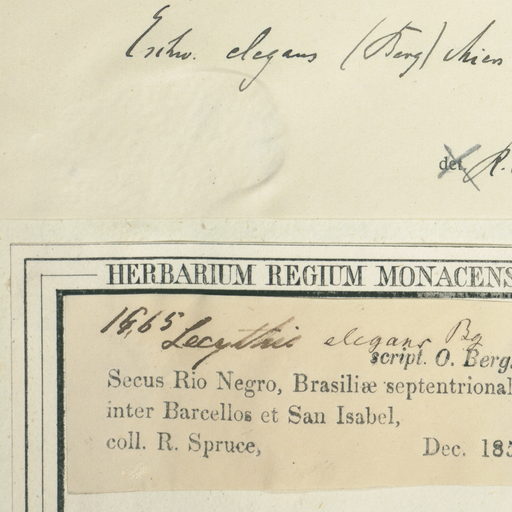 Eschw. elegans (Berg) Miers
det. R.
HERBARIUM REGIUM MONACENS
1865 Lecythis elegans Bg
script. O. Berg.
Secus Rio Negro, Brasiliæ septentrional
inter Barcellos et San Isabel,
coll. R. Spruce, Dec. 185